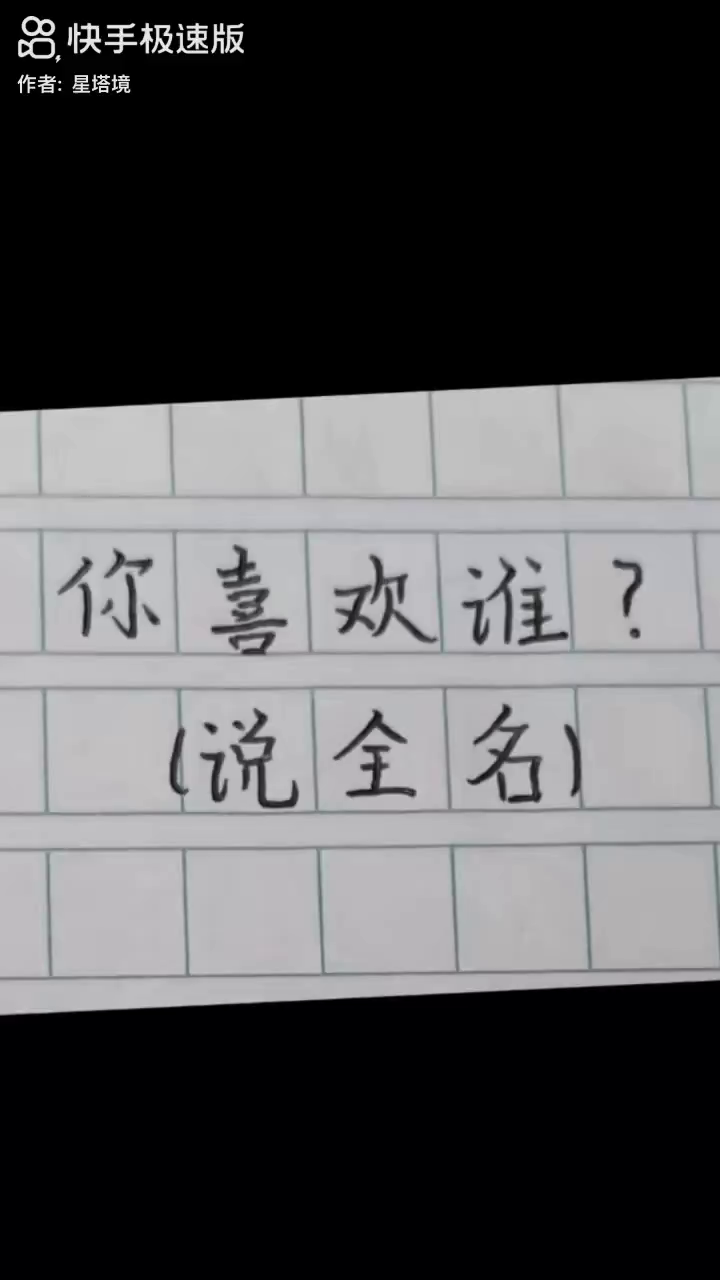 快手极速版
作者: 星塔境
你喜欢谁?
(说全名)